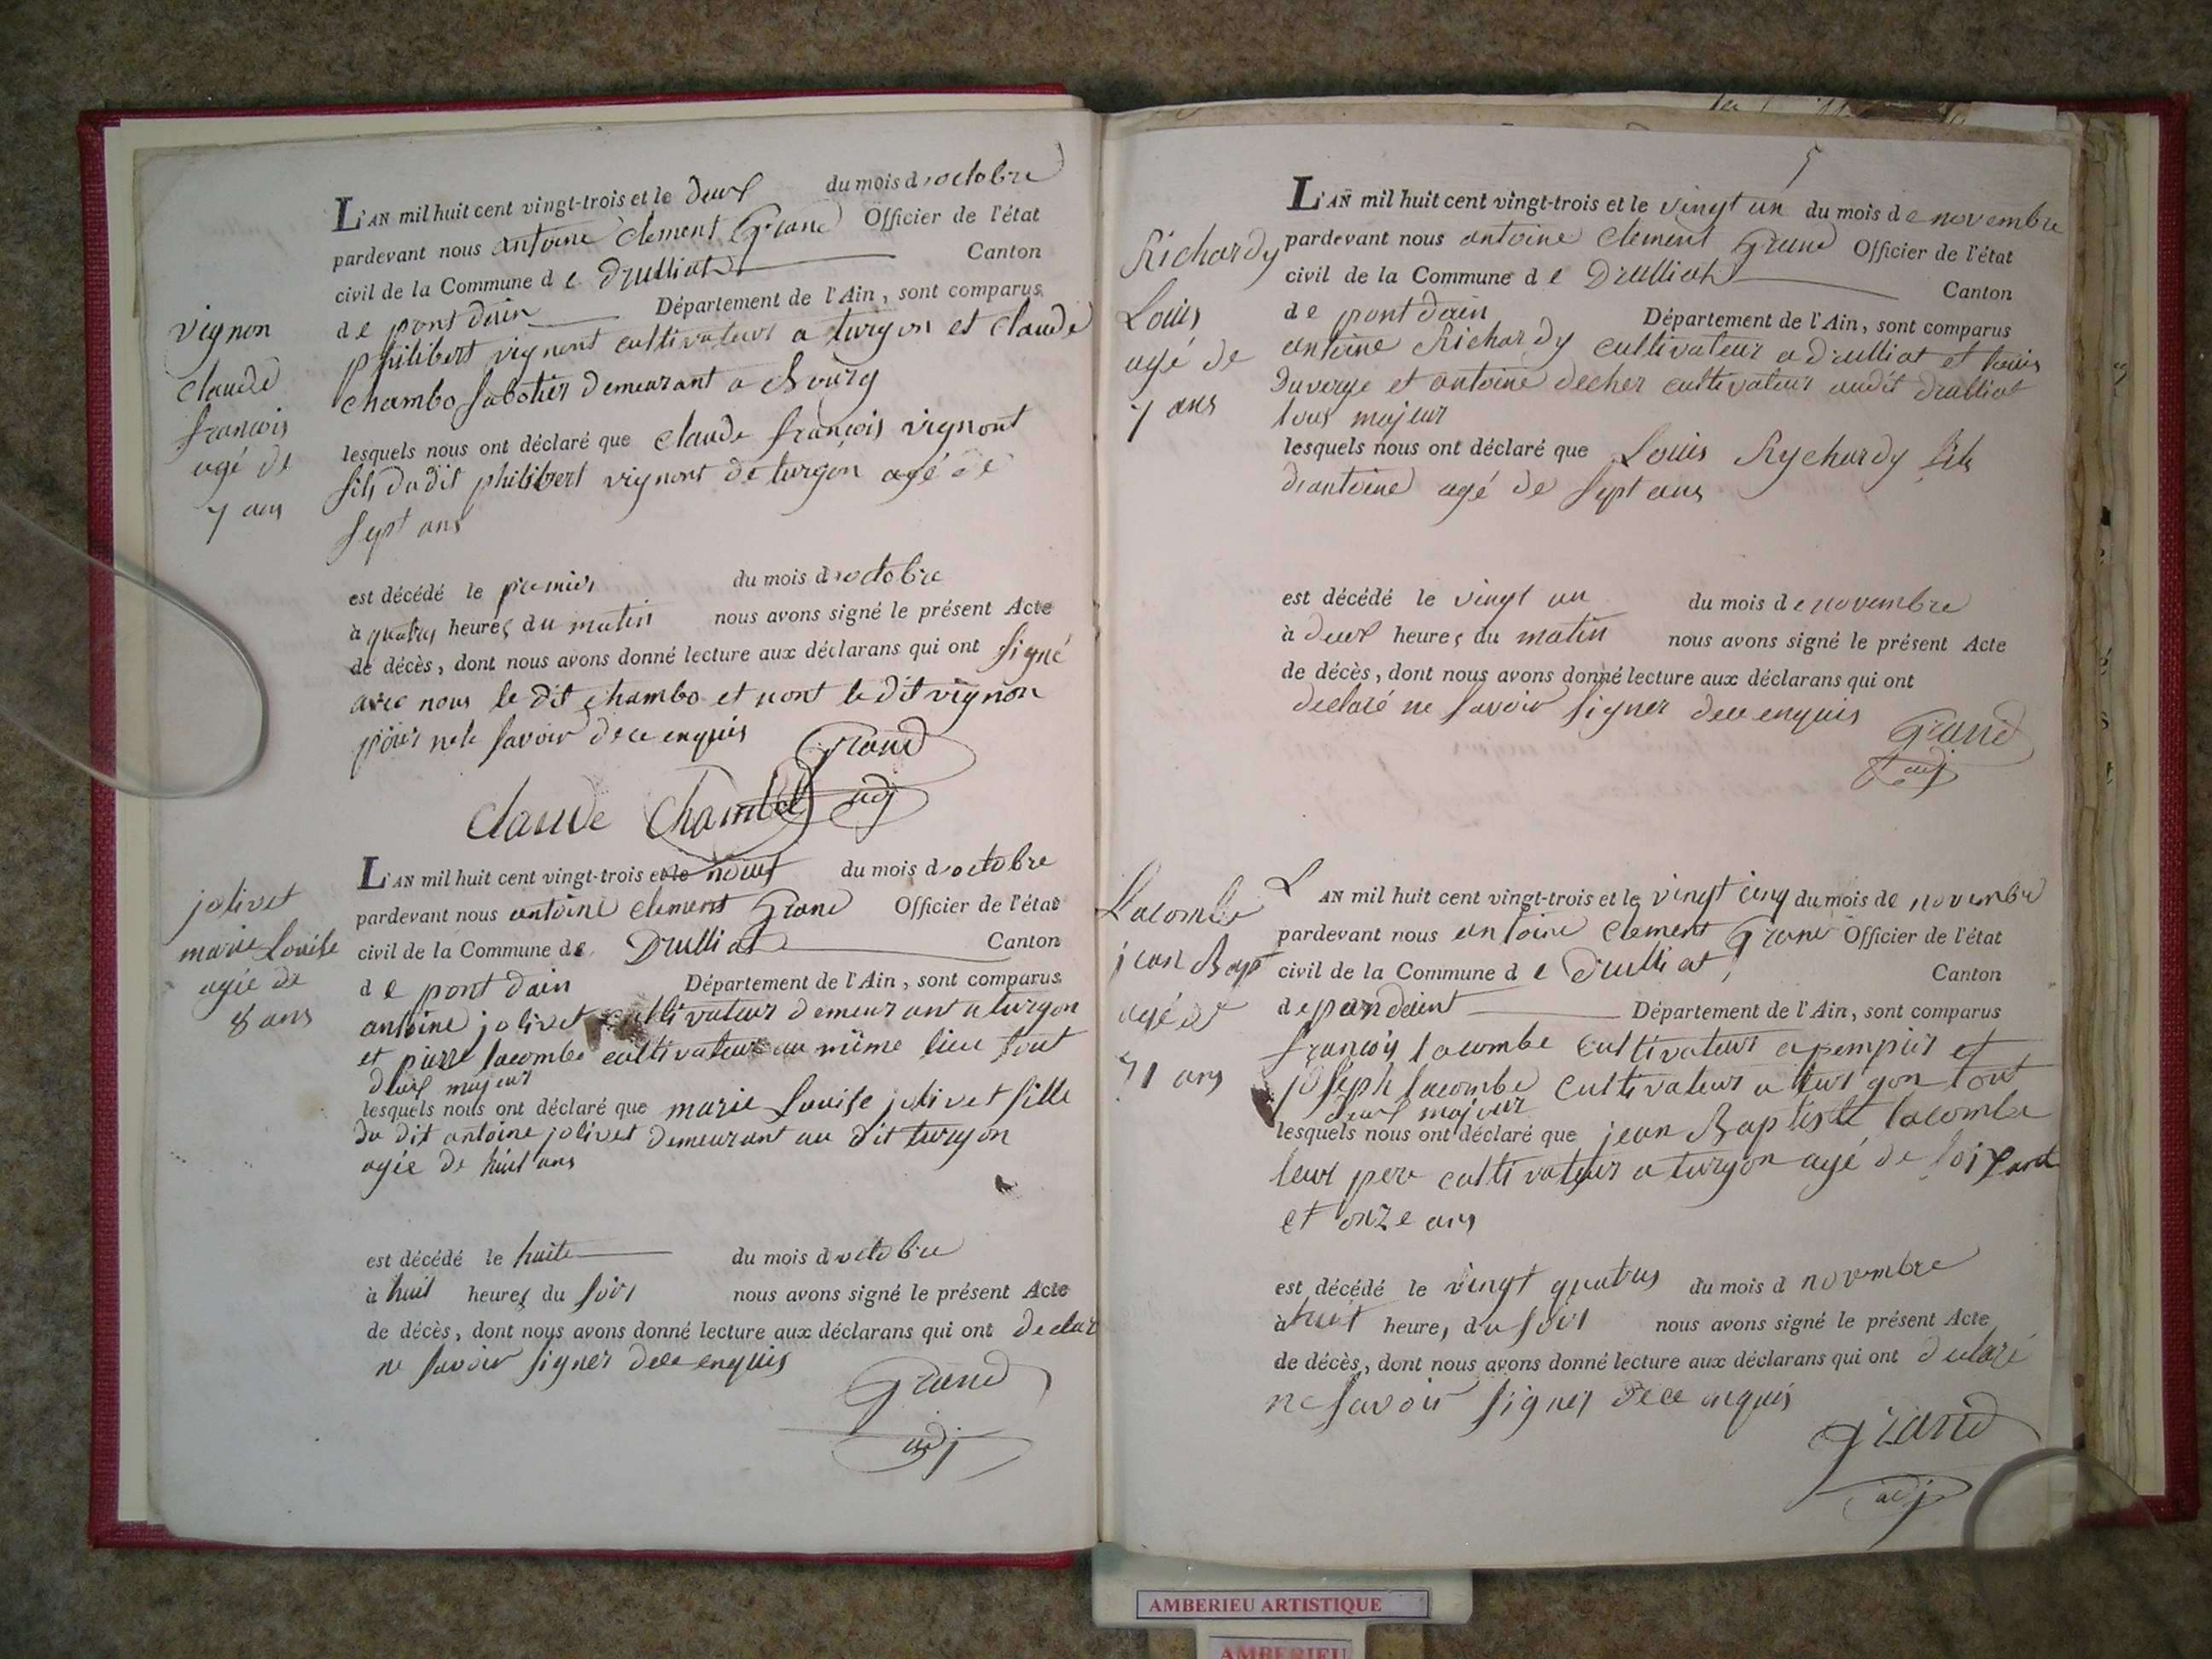 L'AN mil huit cent vingt-trois et le deux du mois d'octobre
pardevant nous antoine Clement Grand Officier de l'état
civil de la Commune de Drulliat Canton
de pont dain Département de l'Ain, sont comparus
philibert vignont cultivateur a turgon et Claude
Chambo sabotier demeurant a Bourg
vignon
claude
francois
agé de
7 ans
lesquels nous ont déclaré que claude françois vignont
fils du dit philibert vignont de turgon agé de
sept ans
est décédé le premier du mois d'octobre
à quatres heures du matin nous avons signé le présent Acte
de décès, dont nous avons donné lecture aux déclarans qui ont signé
avec nous le dit chambo et nont le dit vignon
pour ne le savoir de ce enquis
Grand
adj
Claude Chambo
L'AN mil huit cent vingt-trois et le neuf du mois d'octobre
pardevant nous antoine clement Grand Officier de l'état
civil de la Commune de Drulliat Canton
de pont dain Département de l'Ain, sont comparus
antoine jolivet cultivateur demeurant a turgon
et pierre lacombe cultivateur au même lieu tout
deux majeur
jolivet
marie Louise
agée de
8 ans
lesquels nous ont déclaré que marie Louise jolivet fille
du dit antoine jolivet demeurant au dit turgon
agée de huit ans
est décédé le huite du mois d'octobre
à huit heures du soir nous avons signé le présent Acte
de décès, dont nous avons donné lecture aux déclarans qui ont declar
ne savoir signer de ce enquis
Grand
adj
5
L'AN mil huit cent vingt-trois et le vingt un du mois de novembre
pardevant nous antoine Clement Grand Officier de l'état
civil de la Commune de Drulliat Canton
de pont dain Département de l'Ain, sont comparus
antoine Richardy cultivateur a drulliat et louis
duverge et antoine decher cultivateur audit drulliat
tous majeur
Richardy
Louis
agé de
7 ans
lesquels nous ont déclaré que Louis Rychardy fils
d'antoine agé de sept ans
est décédé le vingt un du mois de novembre
à deux heures du matin nous avons signé le présent Acte
de décès, dont nous avons donné lecture aux déclarans qui ont
declaré ne savoir signer de ce enquis
Grand
adj
L'AN mil huit cent vingt-trois et le vingt cinq du mois de novembre
pardevant nous antoine Clement Grand Officier de l'état
civil de la Commune de Drulliat Canton
de pon daint Département de l'Ain, sont comparus
françois lacombe cultivateur a pempier et
joseph lacombe cultivateur a turgon tout
deux majeur
Lacombe
jean Bapt
agé de
71 ans
lesquels nous ont déclaré que jean Baptiste lacombe
leur pere cultivateur a turgon agé de soixante
et onze ans
est décédé le vingt quatres du mois d novembre
à huit heures du soir nous avons signé le présent Acte
de décès, dont nous avons donné lecture aux déclarans qui ont declaré
ne savoir signer de ce enquis
Grand
adj
AMBERIEU ARTISTIQUE
AMBERIEU